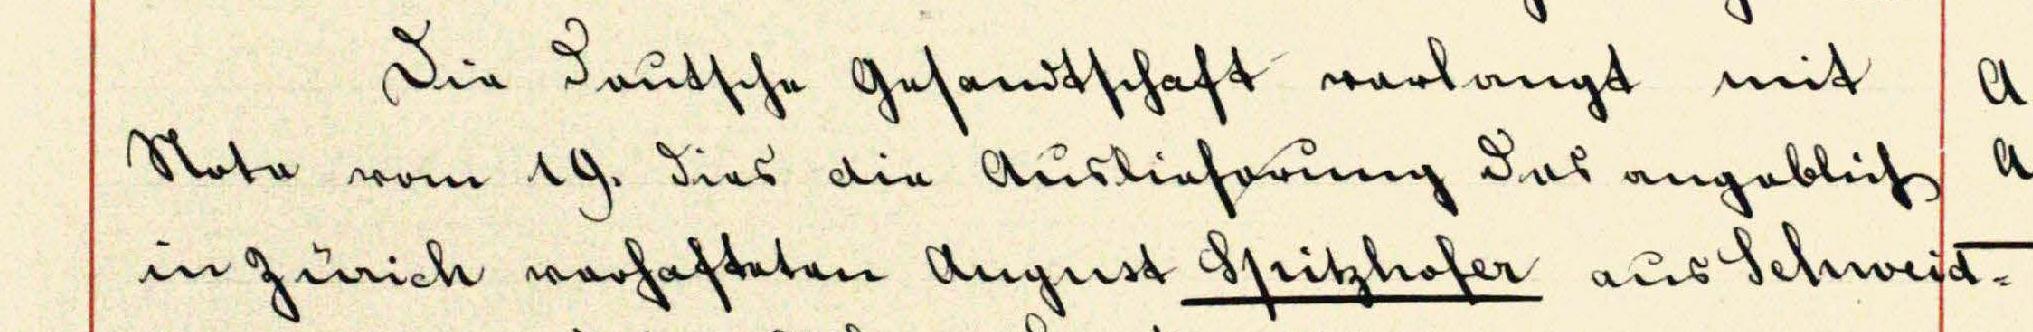 Die deutsche Gesandtschaft verlangt mit
Note vom 19. dies die Auslieferung des angeblich
in Zürich verhafteten August Spitzhofer aus Schweid-